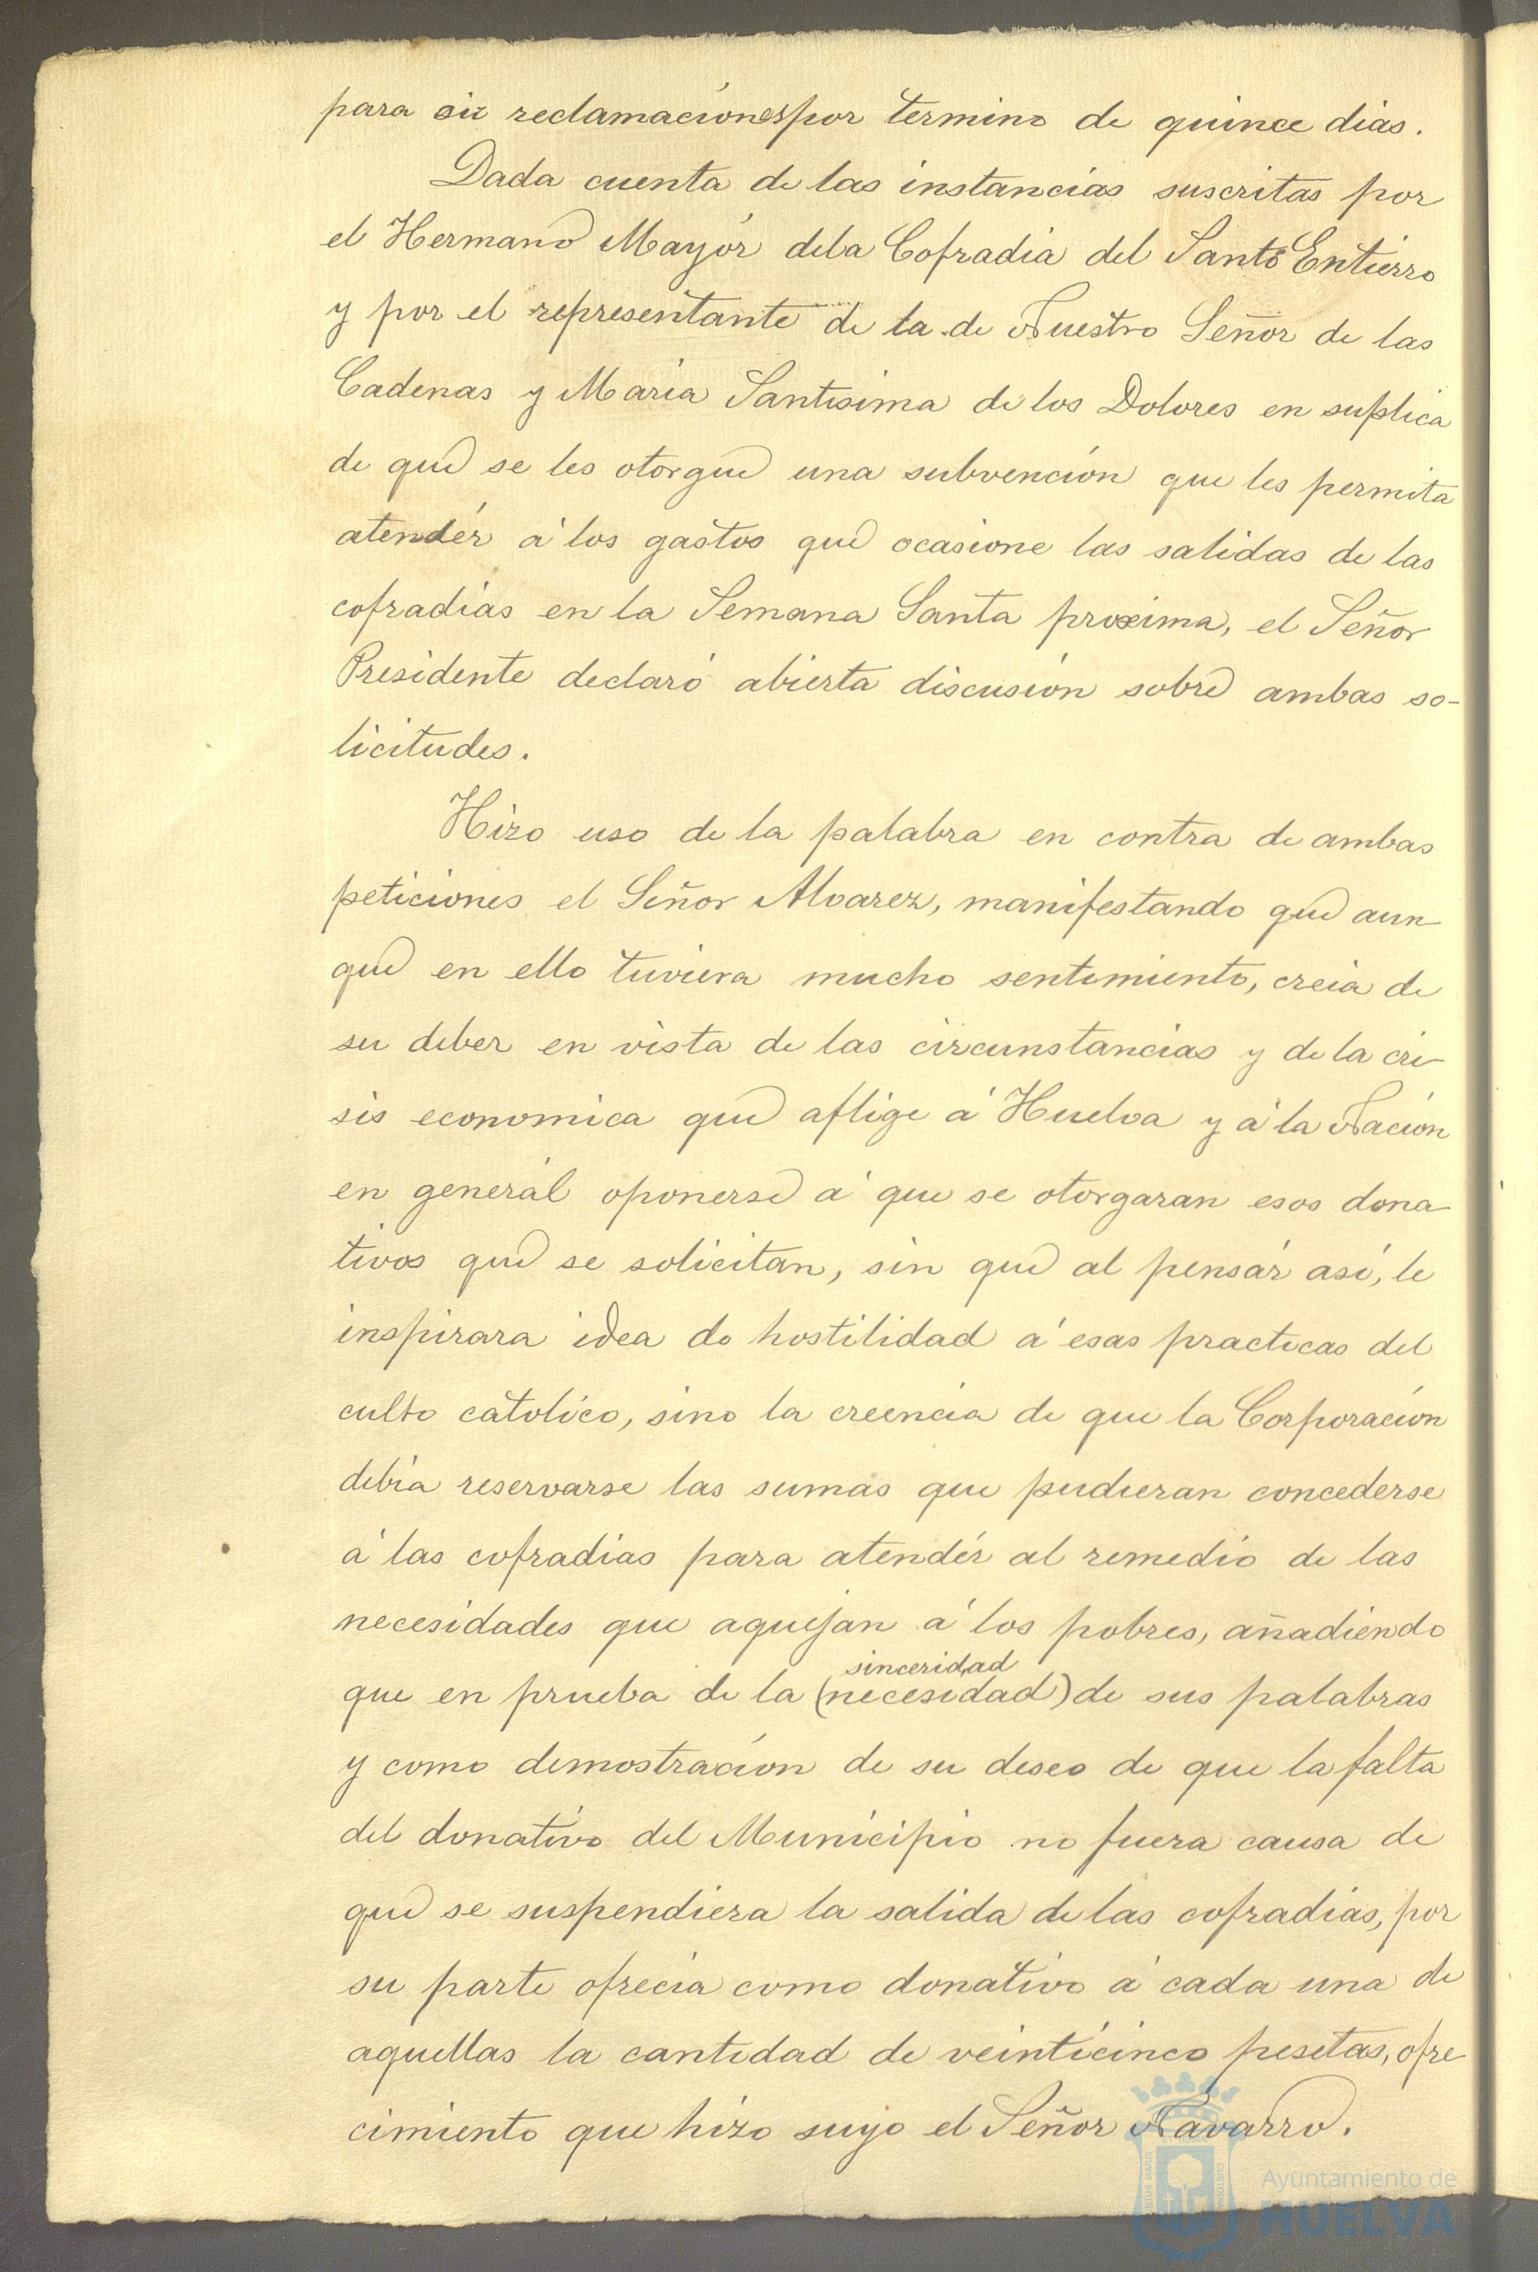 para oir reclamaciones por termino de quince dias.
Dada cuenta de las instancias suscritas por
el Hermano Mayór de la Cofradia del Santo Entierro
y por el representante de la de Nuestro Señor de las
Cadenas y Maria Santisima de los Dolores en suplica
de que se les otorgue una subvención que les permita
atendér á los gastos que ocasione las salidas de las
cofradias en la Semana Santa proxima, el Señor
Presidente declaró abierta discusión sobre ambas so-
licitudes.
Hizo uso de la palabra en contra de ambas
peticiones el Señor Alvarez, manifestando que aun
que en ello tuviera mucho sentimiento, creia de
su deber en vista de las circunstancias y de la cri-
sis economica que aflige á Huelva y á la Nación
en generál oponerse á que se otorgaran esos dona-
tivos que se solicitan, sin que al pensár asi, le
inspirara idea de hostilidad á esas practicas del
culto catolico, sino la creencia de que la Corporación
debia reservarse las sumas que pudieran concederse
á las cofradias para atendér al remedio de las
necesidades que aquejan á los pobres, añadiendo
sinceridad
que en prueba de la (necesidad) de sus palabras
y como demostración de su deseo de que la falta
del donativo del Municipio no fuera causa de
que se suspendiera la salida de las cofradias, por
su parte ofrecia como donativo á cada una de
aquellas la cantidad de veinticinco pesetas, ofre-
cimiento que hizo suyo el Señor Navarro.
Ayuntamiento de
HUELVA